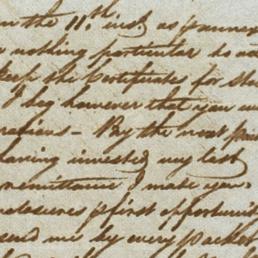 on the 11th inst as 
nothing particular to
keep the Certificates for
I beg however that you
By the next
having invested my last
remittance I make you
p first opportunity
send me by every Packet